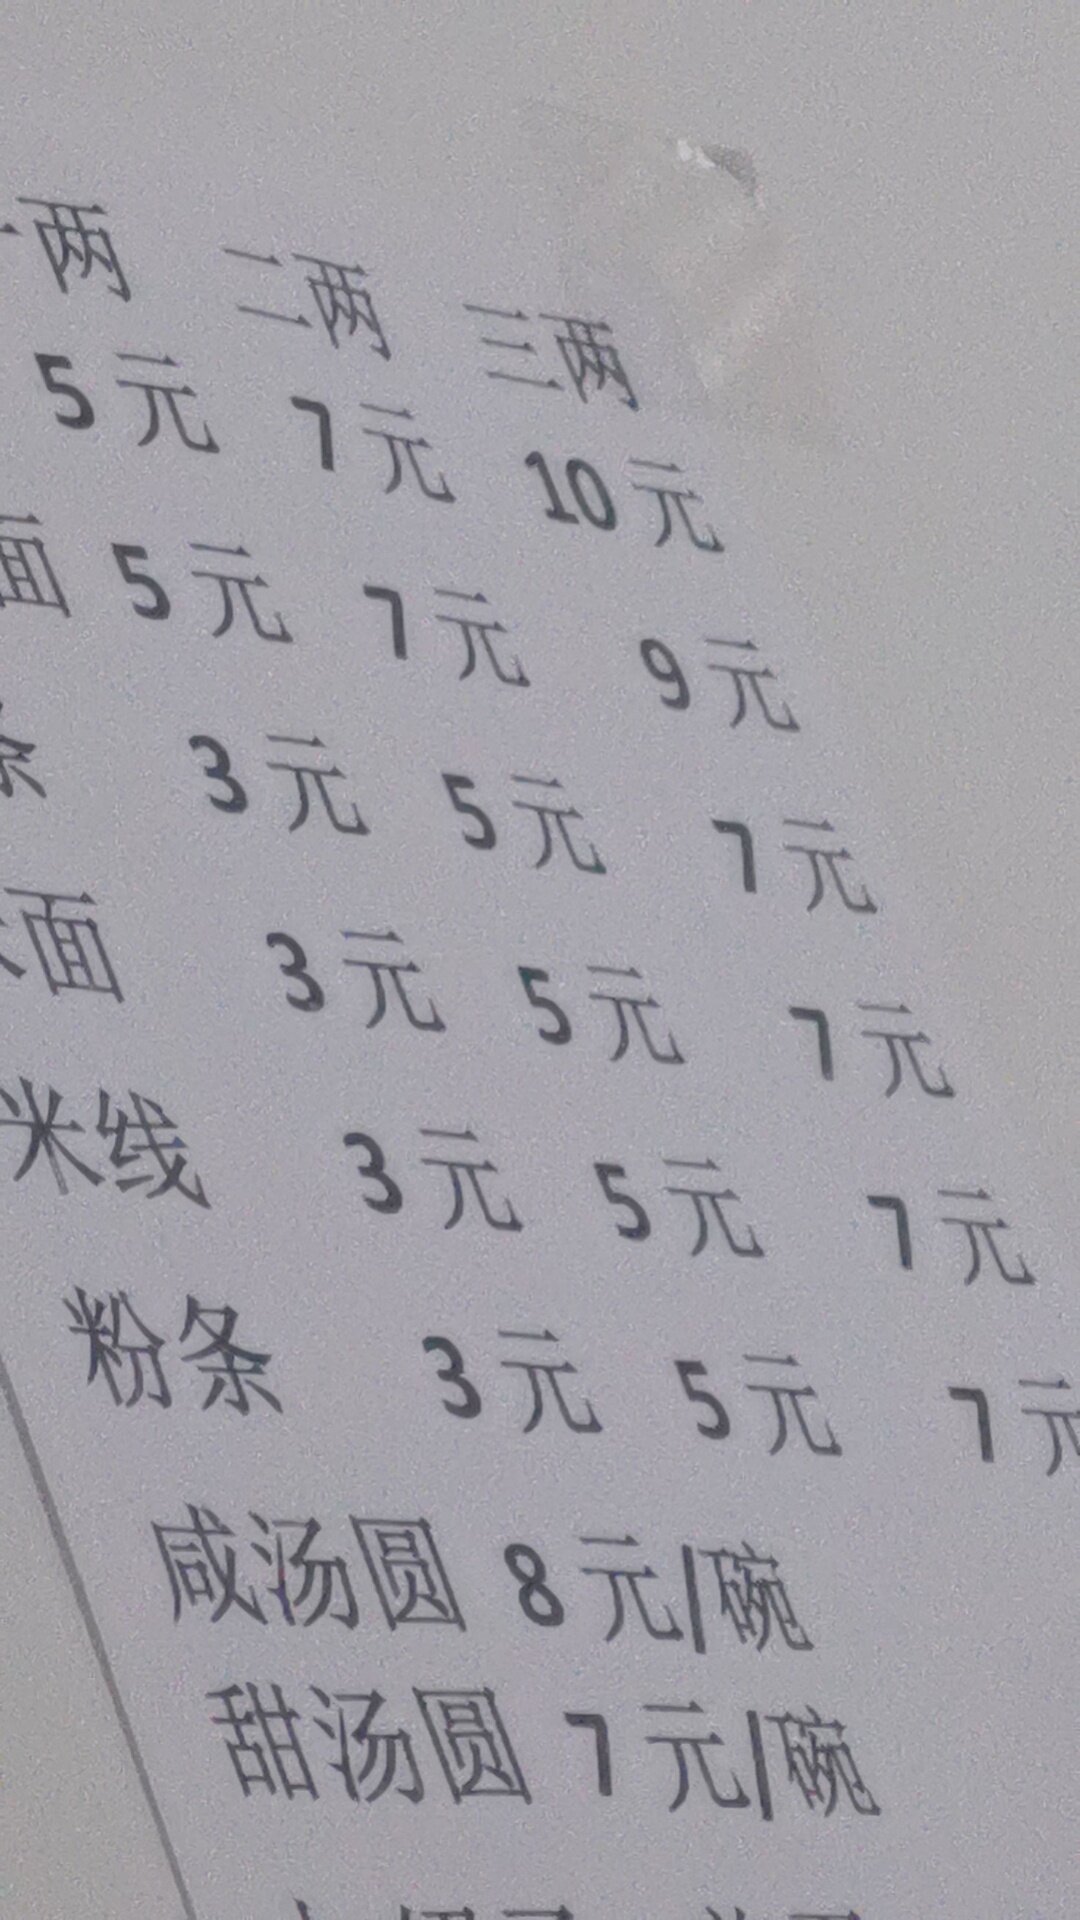 一两 二两 三两
5元 7元 10元
面 5元 7元 9元
条 3元 5元 7元
面 3元 5元 7元
米线 3元 5元 7元
粉条 3元 5元 7元
咸汤圆 8元/碗
甜汤圆 7元/碗